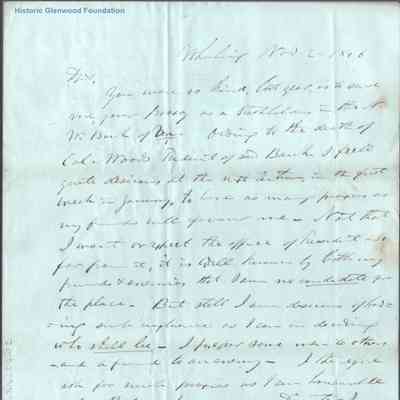 Historic Glenwood Foundation
Wheeling Nov 2 - 1846
Dr Sir,
You were so kind, last year, as to send
me your proxy as a Stockholder in the N.
W. Bank of Va. Owing to the death of
Col. Woods President of said Bank I feel
quite desirous at the next Election, in the first
week in January, to have as many proxies as
my friends will grant me - Not that
I want or expect the office of President - so
far from it, it is well known by both my
friends & enemies that I am no candidate for
the place - But still I am desirous of hav-
-ing such influence as I can in deciding
who shall be - I prefer some men to others
- and a friend to an enemy - I
ask for such proxies as I can honorably